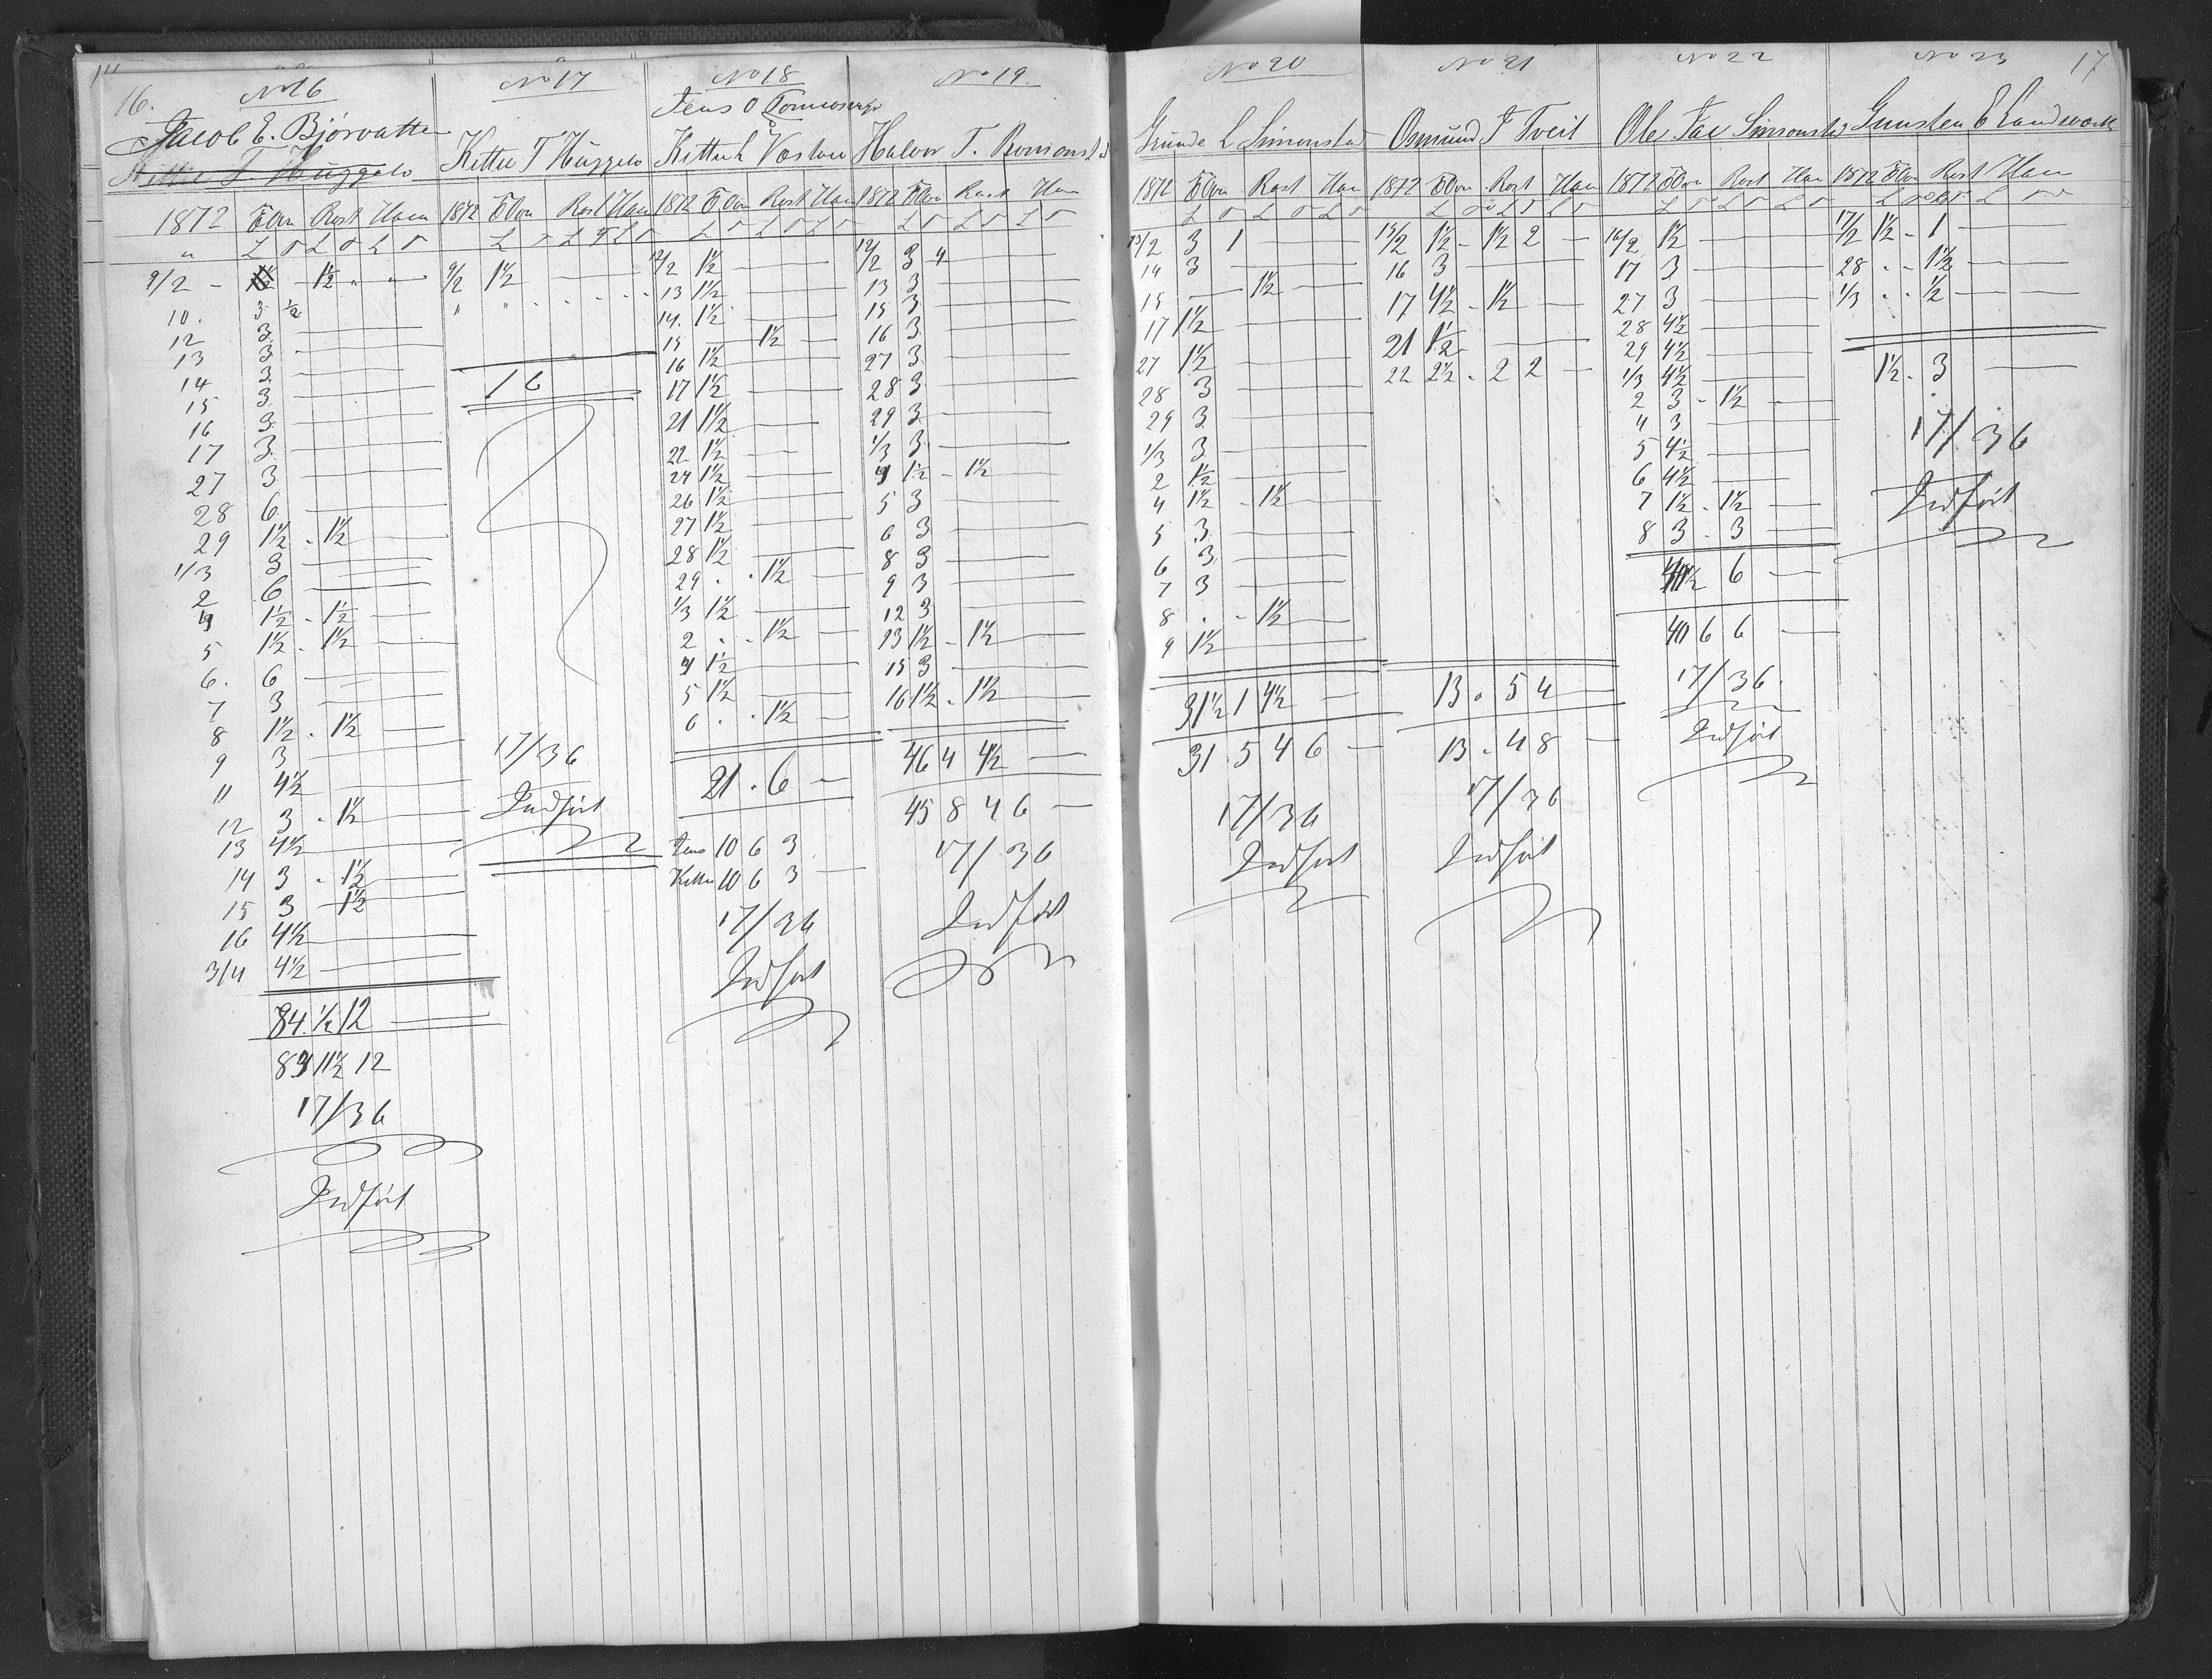 16.
No 16
Jacob E. Bjørvatten
Kittel T Huggelo
1872 Elvn Rost Ham
" L T L T L T
9/2 - 1½ - 1½ " "
10. 3 ½
12 3
13 3
14 3
15 3
16 3
17 3
27 3
28 6
29 1½ - 1½
1/3 3
2 6
4 1½ - 1½
5 1½ - 1½
6. 6
7 3
8 1½ - 1½
9 3
11 4½
12 3 - 1½
13 4½
14 3 - 1½
15 3 - 1½
16 4½
3/4 4½
84. ½ 12
83 11½ 12
17/36
Indført
No 17
Kittel T Huggelo
1872 Elvn Rost Ham
L T L T L T
9/2 1½
" "
16
17/36
Indført
No 18
Jens O
Kittel
1872 Elvn Rost Ham
L T L T L T
12/2 1½
13 1½
14. 1½
15 — 1½
16 1½
17 1½
21 1½
22 1½
24 1½
26 1½
27 1½
28 1½
29 . . 1½
1/3 1½
2 . . 1½
4 1½
5 1½
6 . . 1½
21 . 6
Jens 10 6 3
Kittel 10 6 3
17/36
Indført
No 19.
Halvor T.
1872 Elvn Rost Ham
L T L T L T
12/2 3 4
13 3
15 3
16 3
27 3
28 3
29 3
1/3 3
4 1½ - 1½
5 3
6 3
8 3
9 3
12 3
13 1½ - 1½
15 3
16 1½ - 1½
46 4 4½
45 8 4 6
17/36
Indført
No 20
Grunde L Simonstad
1872 Elvn Rost Ham
L T L T L T
13/2 3 1
14 3
15 — 1½
17 1½
27 1½
28 3
29 3
1/3 3
2 1½
4 1½ - 1½
5 3
6 3
7 3
8 . - 1½
9 1½
31½ 1 4½
31 5 4 6
17/36
Indført
No 21
Osmund T Tveit
1872 Elvn Rost Ham
L T L T L T
15/2 1½ - 1½ 2
16 3
17 4½ - 1½
21 1½
22 2½ - 2 2
13 . 5 4
13 - 4 8
17/36
Indført
No 22
Ole Jac Simonstad
1872 Elvn Rost Ham
L T L T L T
16/2 1½
17 3
27 3
28 4½
29 4½
1/3 4½
2 3 - 1½
4 3
5 4½
6 4½
7 1½ - 1½
8 3 - 3
40½ 6
40 6 6
17/36
Indført
No 23
17
Gunsten E
1872 Elvn Rost Ham
L T L T L T
17/2 1½ - 1
28 . - 1½
1/3 . . ½
1½ - 3
17/36
Indført